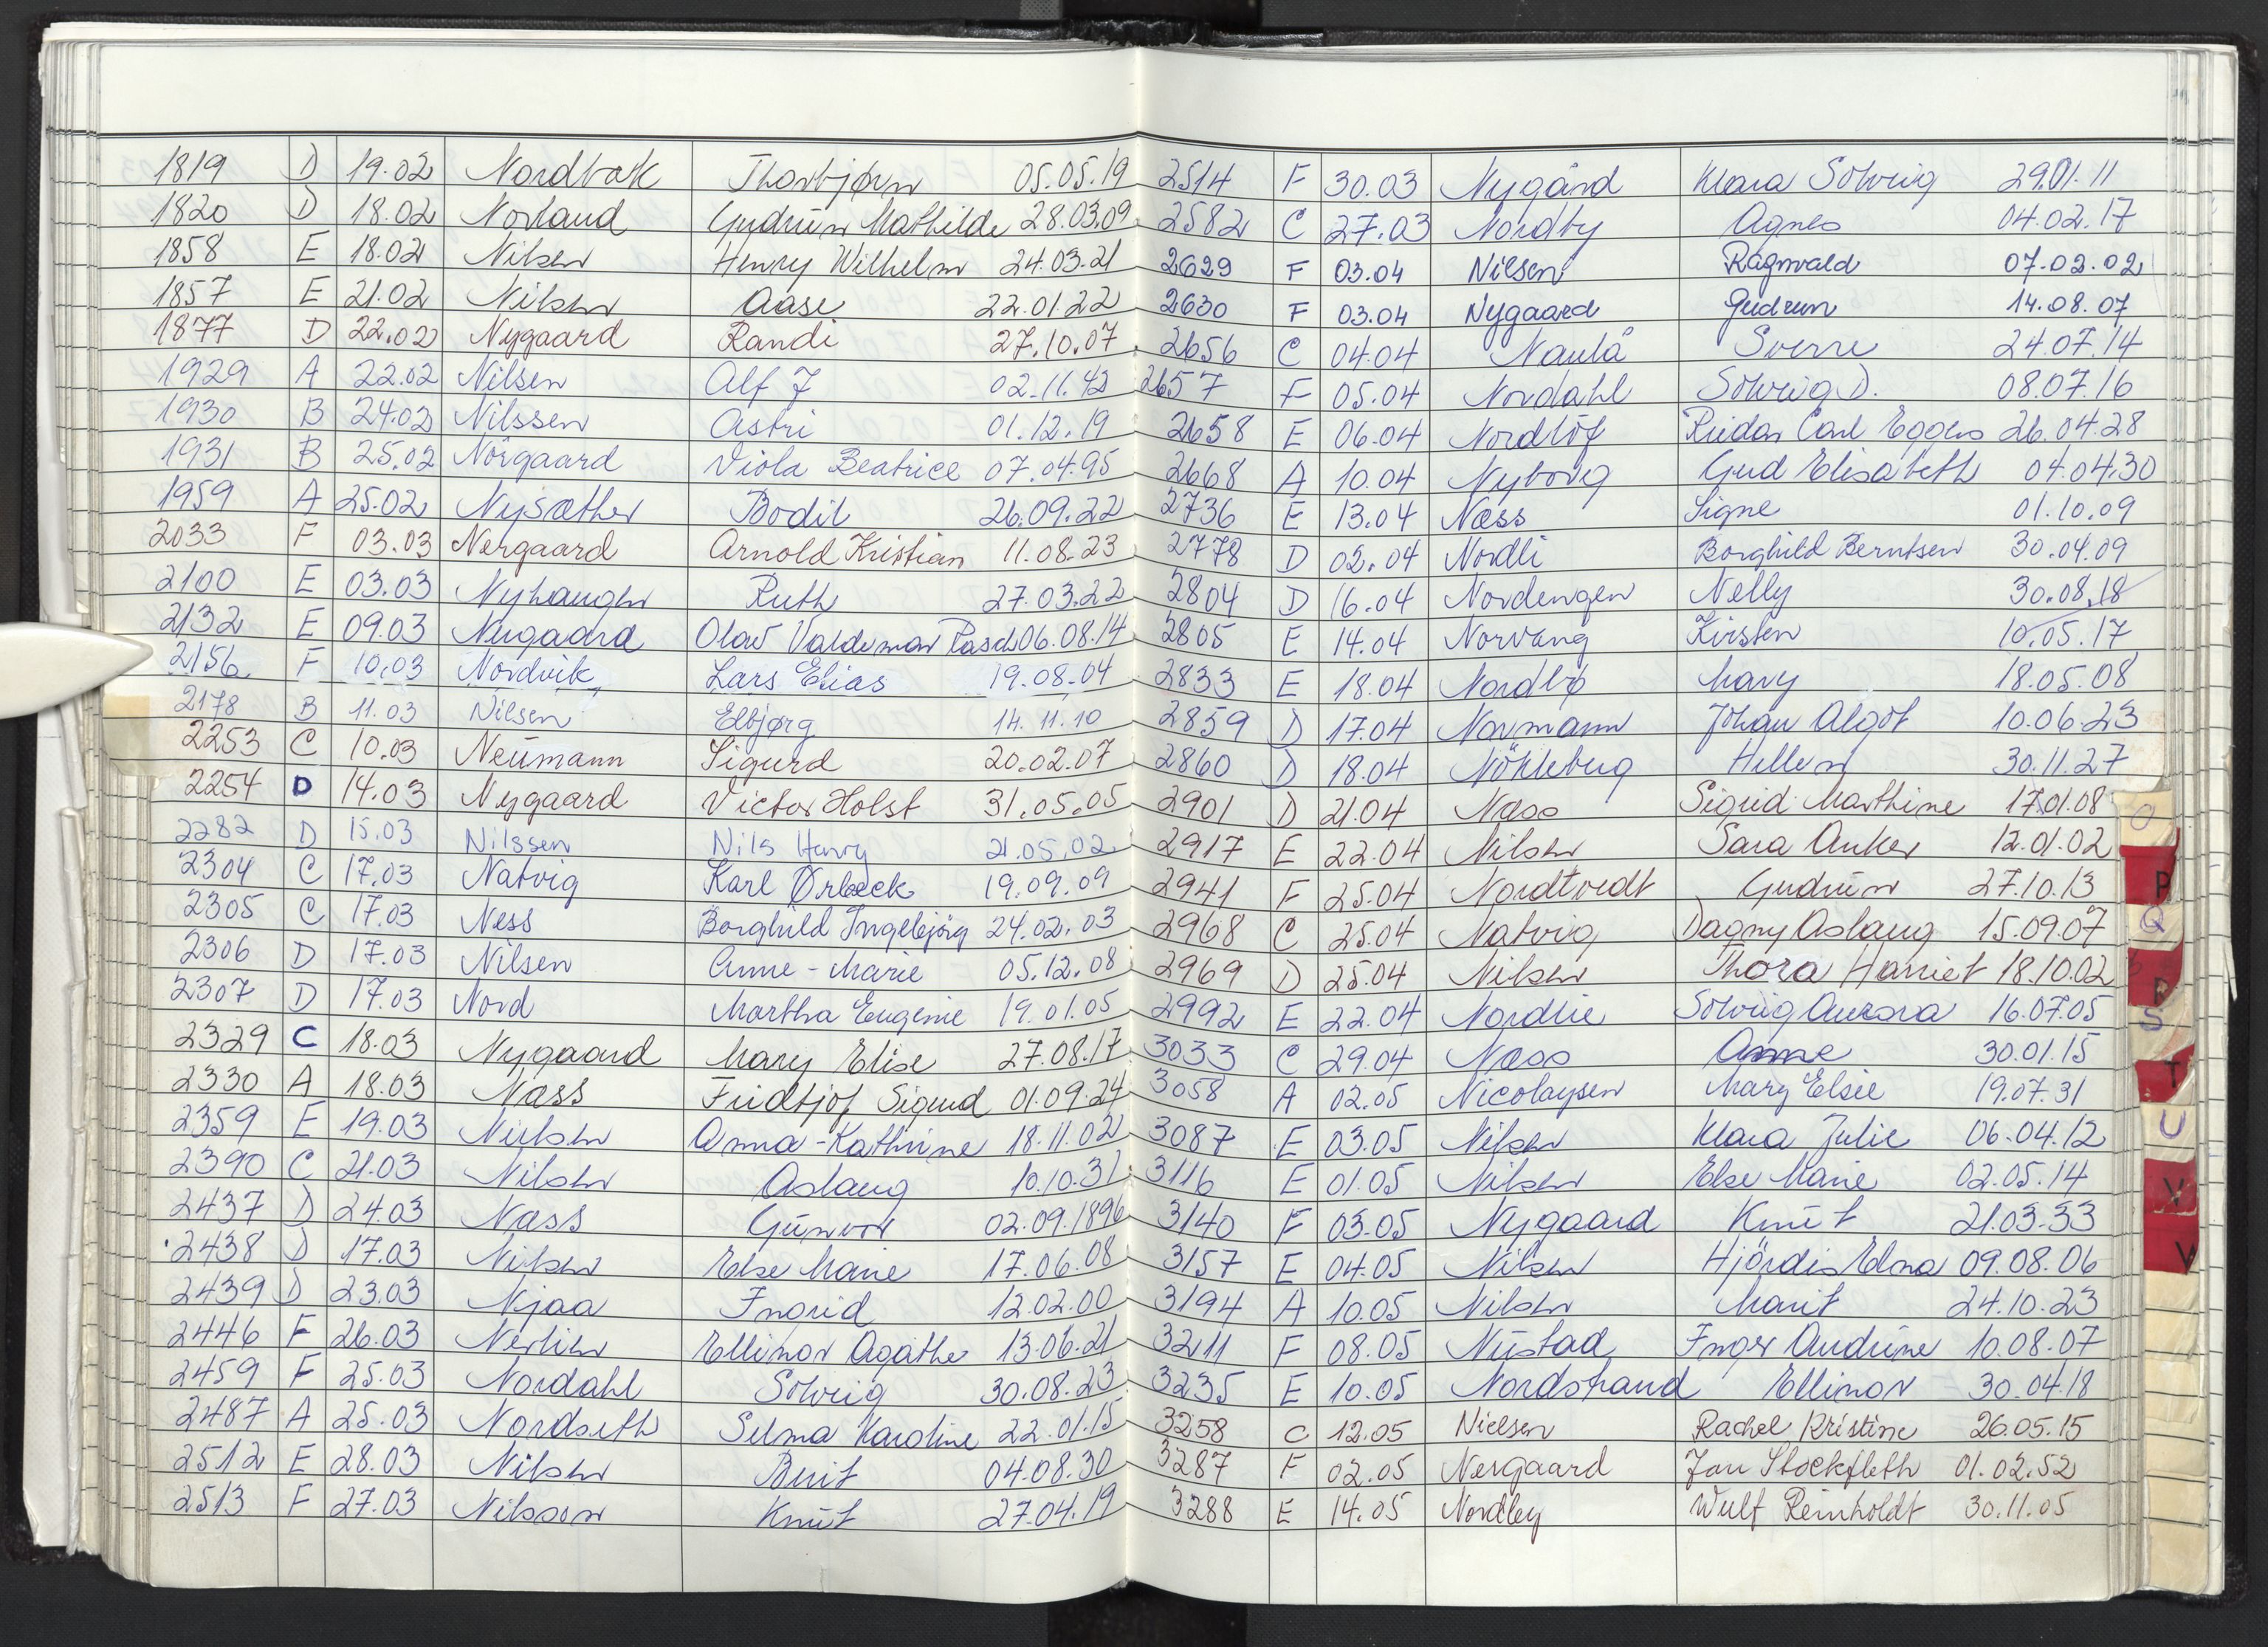 1819 D 19.02 Nordbak Thorbjørn 05.05.19
1820 D 18.02 Norland Gudrun Mathilde 28.03.09
1858 E 18.02 Nilsen Henry Wilhelm 24.03.21
1857 E 21.02 Nilsen Aase 22.01.22
1877 D 22.02 Nygaard Randi 27.10.07
1929 A 22.02 Nilsen Alf J 02.11.42
1930 B 24.02 Nilssen Astri 01.12.19
1931 B 25.02 Nörgaard Viola Beatrice 07.04.95
1959 A 25.02 Nysæther Bodil 26.09.22
2033 F 03.03 Nergaard Arnold Kristian 11.08.23
2100 E 03.03 Nyhaugen Ruth 27.03.22
2132 E 09.03 Nygaard Olav Valdemar 06.08.14
2156 F 10.03 Nordvik Lars Elias 19.08.04
2178 B 11.03 Nilsen Elbjørg 14.11.10
2253 C 10.03 Neumann Sigurd 20.02.07
2254 D 14.03 Nygaard Victor Holst 31.05.05
2282 D 15.03 Nilssen Nils Henry 21.05.02
2304 C 17.03 Natvig Karl Ørbeck 19.09.09
2305 C 17.03 Ness Borghild Ingebjørg 24.02.03
2306 D 17.03 Nilsen Anne-Marie 05.12.08
2307 D 17.03 Nord Martha Eugenie 19.01.05
2329 C 18.03 Nygaard Mary Elise 27.08.17
2330 A 18.03 Næss Fridtjof Sigurd 01.09.24
2359 E 19.03 Nielsen Anna-Kathrine 18.11.02
2390 C 21.03 Nilsen Aslaug 10.10.31
2437 D 24.03 Næss Gunvor 02.09.1896
2438 D 17.03 Nilsen Else Marie 17.06.08
2439 D 23.03 Njaa Ingrid 12.02.00
2446 F 26.03 Nerlien Ellinor Agathe 13.06.21
2459 F 25.03 Nordahl Solveig 30.08.23
2487 A 25.03 Nordseth Selma Karoline 22.01.15
2512 E 28.03 Nilsen Berit 04.08.30
2513 F 27.03 Nilsson Knut 27.04.19
2514 F 30.03 Nygård Klara Solveig 29.01.11
2582 C 27.03 Nordby Agnes 04.02.17
2629 F 03.04 Nilsen Ragnvald 07.02.02
2630 F 03.04 Nygaard Gudrun 14.08.07
2656 C 04.04 Naulå Sverre 24.07.14
2657 F 05.04 Nordahl Solveig D. 08.07.16
2658 E 06.04 Nordlöf Reidar Carl Eggers 26.04.28
2668 A 10.04 Nyborg Gud Elisabeth 04.04.30
2736 E 13.04 Næss Signe 01.10.09
2778 D 02.04 Nordli Borghild Berntsen 30.04.09
2804 D 16.04 Nordengen Nelly 30.08.18
2805 E 14.04 Norvang Kirsten 10.05.17
2833 E 18.04 Nordbø Mary 18.05.08
2859 D 17.04 Normann Johan Algot 10.06.23
2860 D 18.04 Nökleberg Hellen 30.11.27
2901 D 21.04 Næss Sigrid Marthine 17.01.08
2917 E 22.04 Nilsen Sara Anker 12.01.02
2941 F 25.04 Nordtvedt Gudrun 27.10.13
2968 C 25.04 Natvig Dagny Aslaug 15.09.07
2969 D 25.04 Nilsen Thora Harriet 18.10.02
2992 E 22.04 Nordlie Solveig Aurora 16.07.05
3033 C 29.04 Næss Anne 30.01.15
3058 A 02.05 Nicolaysen Mary Elsie 19.07.31
3087 E 03.05 Nilsen Klara Julie 06.04.12
3116 E 01.05 Nilsen Else Marie 02.05.14
3140 F 03.05 Nygaard Knut 21.03.33
3157 E 04.05 Nilsen Hjördis Edna 09.08.06
3194 A 10.05 Nilsen Marit 24.10.23
3211 F 08.05 Nustad Inger Andrine 10.08.07
3235 E 10.05 Nordstrand Ellinor 30.04.18
3258 C 12.05 Nielsen Rachel Kristine 26.05.15
3287 F 02.05 Nergaard Jan Stockfleth 01.02.52
3288 E 14.05 Nordley Wulf Reinholdt 30.11.05
O
P
Q
R
S
T
U
V